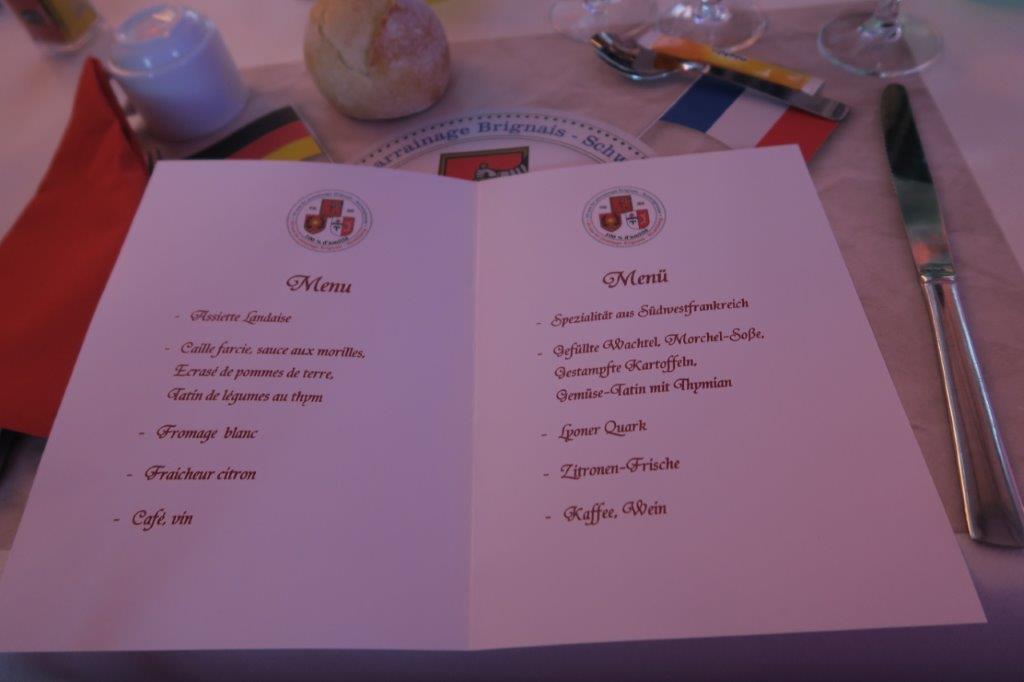 arrainage Brignais - Schw
100 % d'amitié
Menu
- Assiette Landaise
- Caille farcie, sauce aux morilles,
Ecrasé de pommes de terre,
Tatin de légumes au thym
- Fromage blanc
- Fraicheur citron
- Café, vin
100 % d'amitié
Menü
- Spezialität aus Südwestfrankreich
- Gefüllte Wachtel, Morchel-Soße,
Gestampfte Kartoffeln,
Gemüse-Tatin mit Thymian
- Lyoner Quark
- Zitronen-Frische
- Kaffee, Wein